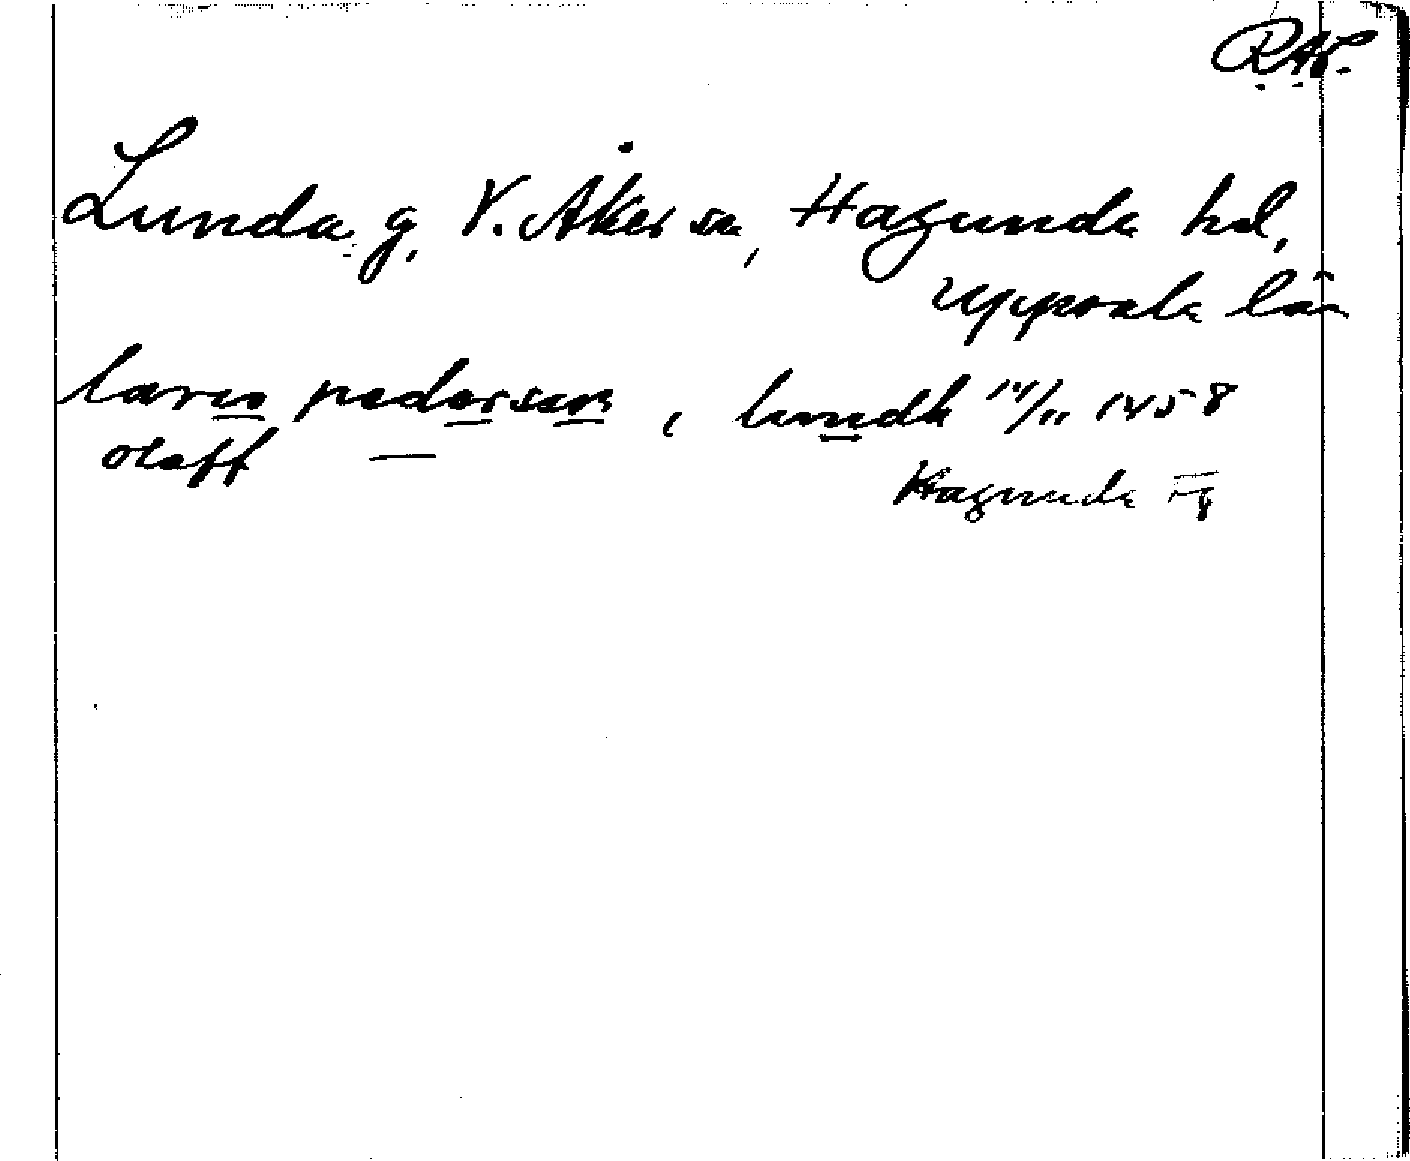 RAP.
Lunda, g, V. Åker sn, Hagunda hd,
Uppsala län
lares pederson, i lundh 14/11 1458
olaff —
Hagunda